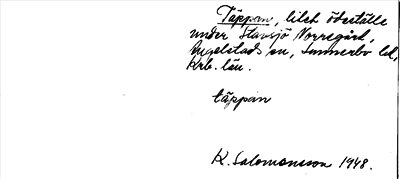 Täppan, litet ödeställe
under Stavsjö Norregård,
Angelstads sn, Sunnerbo hd,
Krb. län.
täppan
K. Salomonsson 1948.